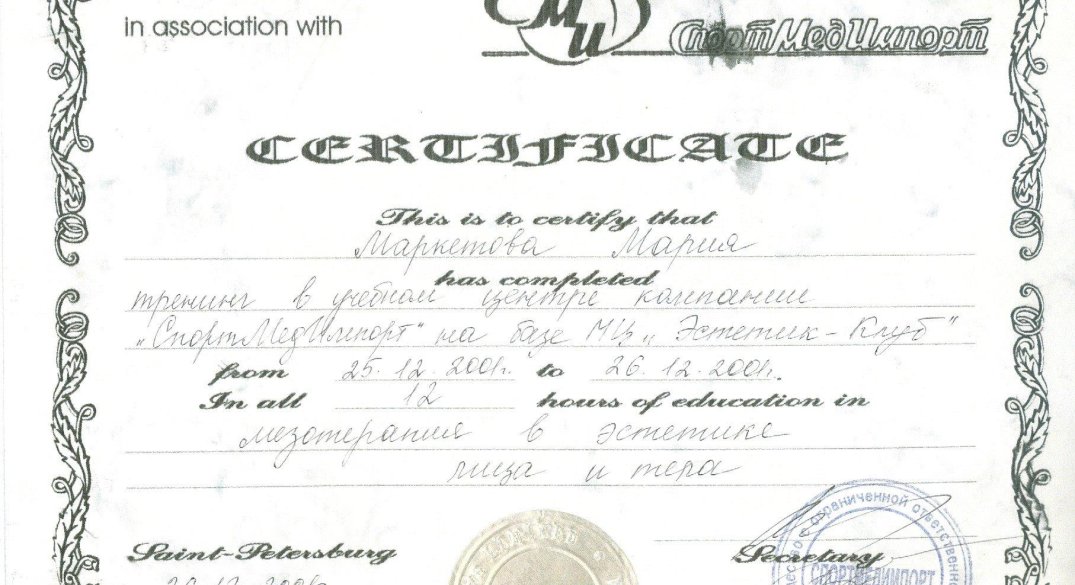 in association with
МИ СпортМедИмпорт
CERTIFICATE
This is to certify that
Маркетова Мария
has completed
тренинг в учебном центре компании
„СпортМедИмпорт" на базе МЦ „Эстетик-Клуб"
from 25.12.2001г. to 26.12.2001г.
In all 12 hours of education in
мезотерапия в эстетике
лица и тела
Saint-Petersburg
Secretary
ограниченной ответственн
СПОРТМЕДИМПОРТ